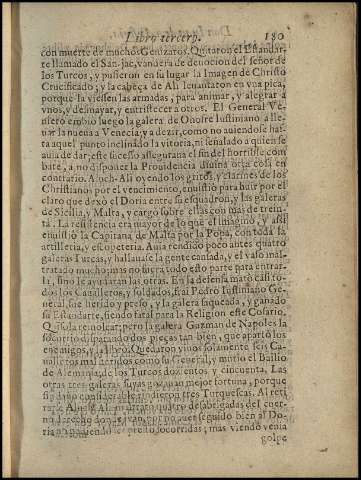 Libro tercero, 180
con muerte de muchos Genizaros. Quitaron el Estandar-
te llamado el San-jac, vandera de deuocion del señor de
los Turcos, y pusieron en su lugar la Imagen de Christo
Crucificado; y la cabeça de Ali leuantaron en vna pica,
porque la viessen las armadas, para animar, y alegrar a
vnos, y desmayar, y entristecer a otros. El General Ve-
niero embio luego la galera de Onofre Iustiniano a lle-
uar la nueua a Venecia; y a dezir, como no auiendose has-
ta aquel punto inclinado la vitoria, ni señalado a quien se
auia de dar; este sucesso assegurana el fin del horrible com
bate, a no disponer la Prouidencia diuina otra cosa en
contrario. Aluch-Ali oyendo los gritos, y clarines de los
Christianos por el vencimiento, enuistiò para huir por el
claro que dexò el Doria entre su esquadron, y las galeras
de Sicilia, y Malta, y cargò sobre ellas con mas de trein-
ta. La resistencia era mayor de lo que el imaginò, y assi
enuistiò la Capitana de Malta por la Popa, con toda la
artilleria, y escopeteria. Auia rendido poco antes quatro
galeras Turcas, y hallauase la gente cansada, y el vaso mal-
tratado mucho; mas no fuera todo esto parte para entrar-
la, sino le ayudaran las otras. En la defensa matò casi to-
dos los Caualleros, y soldados, frai Pedro Iustiniano Ge-
neral, fue herido y preso, y la galera saqueada, y ganado
su Estandarte, siendo fatal para la Religion este Cosario.
Quisola remolcar; pero la galera Guzman de Napoles la
socorriò disparando dos pieças tan bien, que apartò los
enemigos, y la librò. Quedaron viuos solamente seis Ca-
ualleros mal heridos como su General, y murio el Bailio
de Alemania, de los Turcos dozientos y cincuenta. Las
otras tres galeras suyas gozaron mejor fortuna, porque
sin daño considerable rindieron tres Turquescas. Al reti-
rarse Aluch Ali, maltratò quatro desabrigadas del cuer-
no derecho don Iuan, por no auer seguido bien al Do-
ria no pudiendo ser presto socorridas; mas viendo venia
golpe